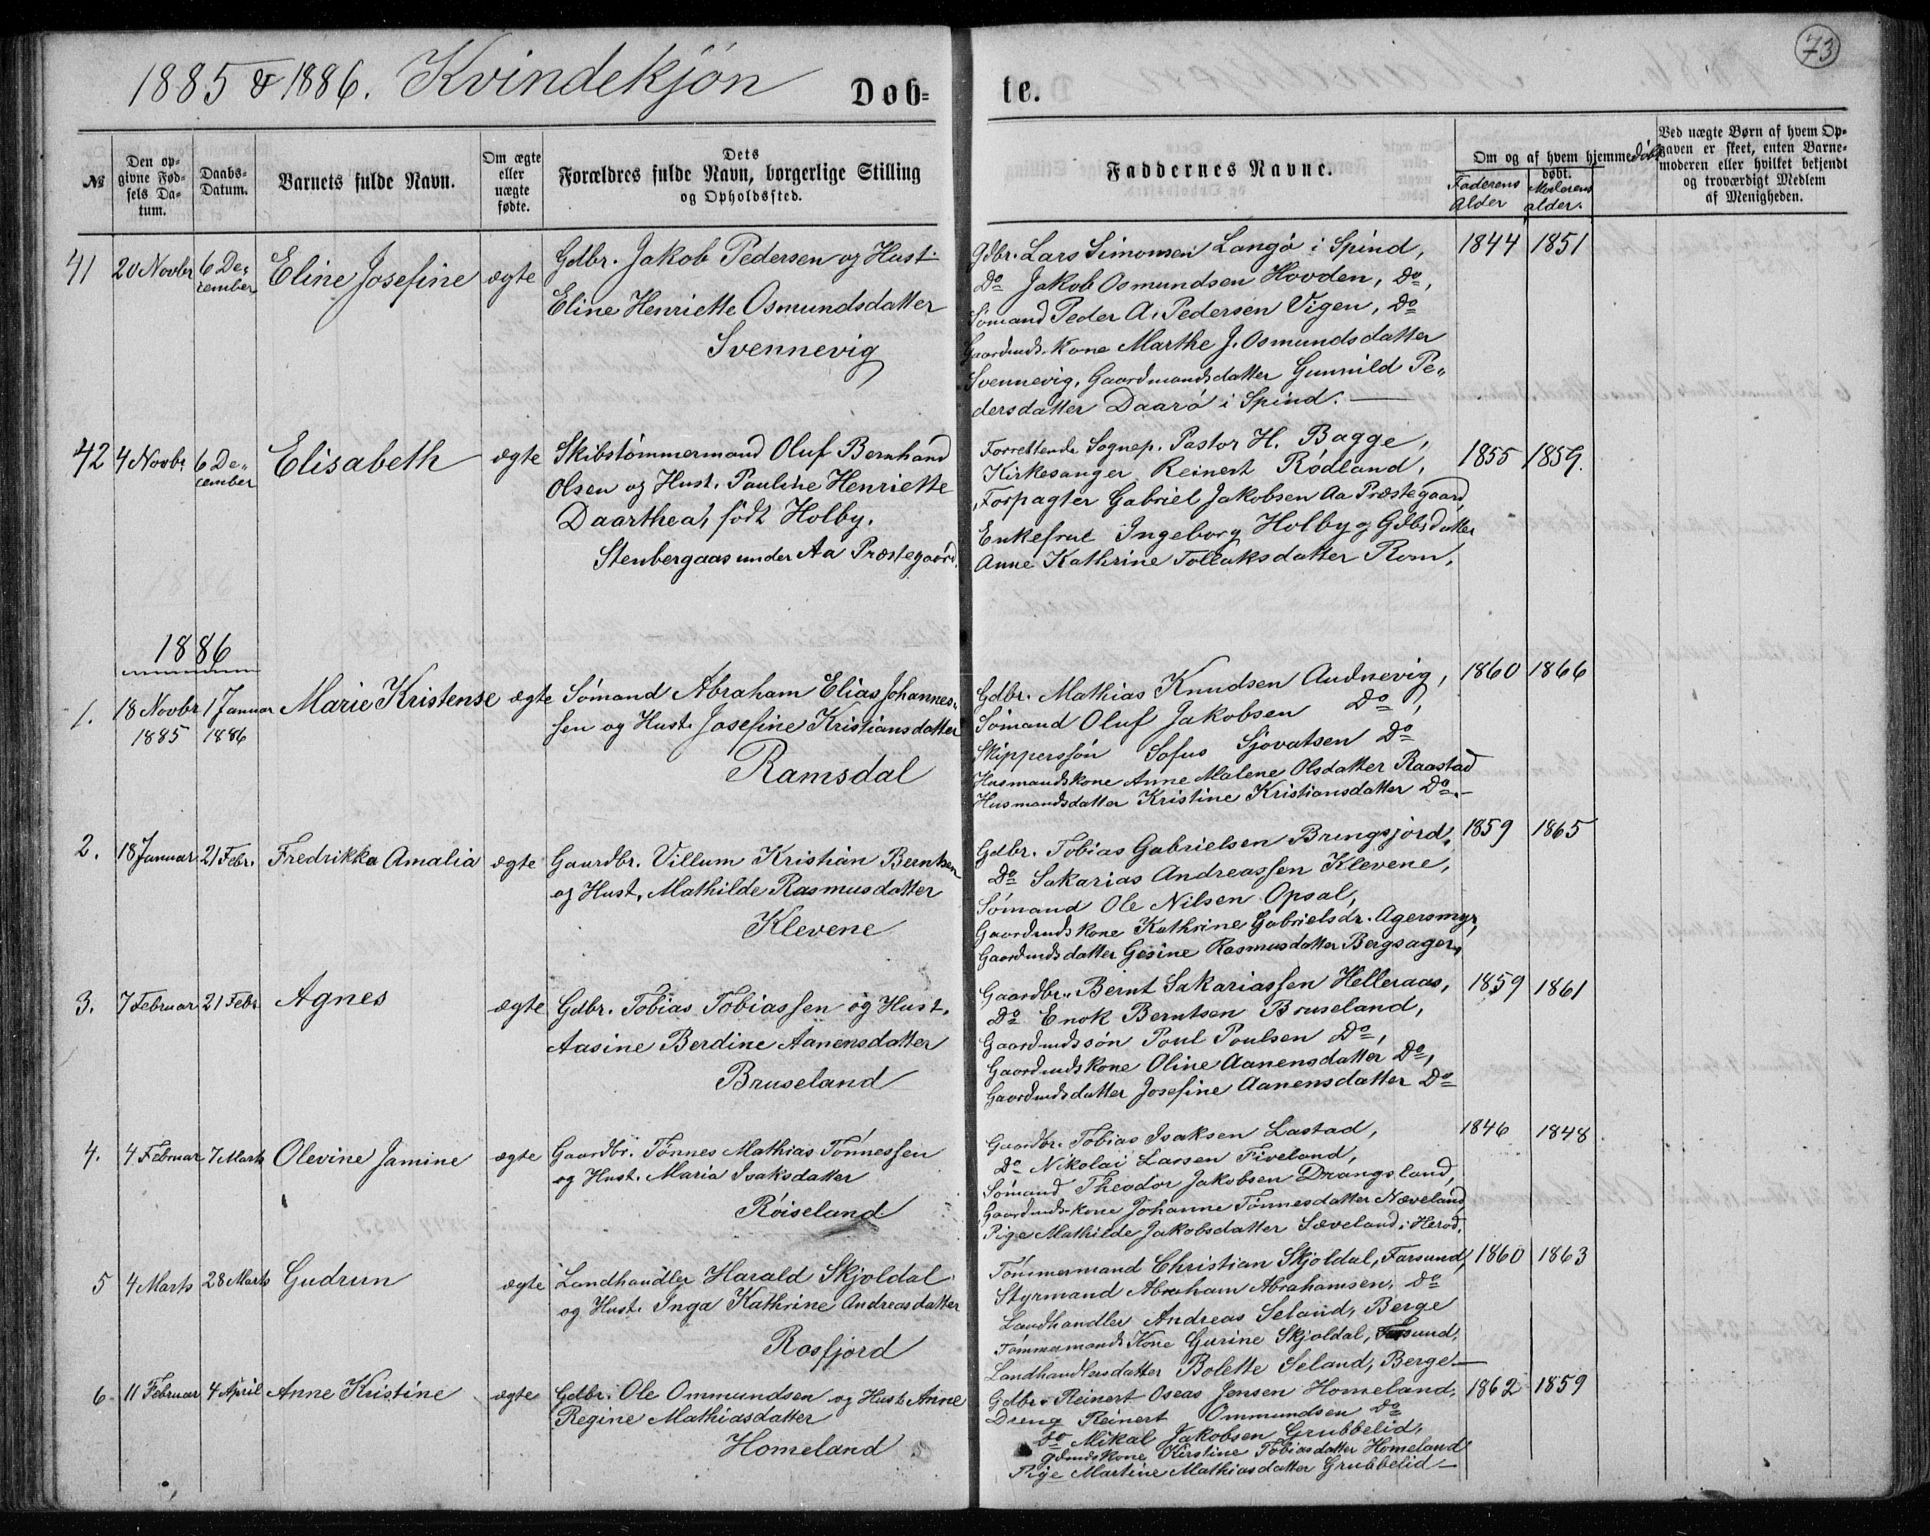 73
1885 & 1886. Kvindekjøn
Døb=
te.
№
Den op-
givne Fød-
sels Da-
tum.
Daabs-
Datum.
Barnets fulde Navn.
Om ægte
eller
uægte
fødte.
Dets
Forældres fulde Navn, borgerlige Stilling
og Opholdssted.
Faddernes Navne.
Om og af hvem hjemmedøbt
døbt.
Faderens
Alder
Moderens
alder.
Ved uægte Børn af hvem Op-
gaven er skeet, enten Barne-
moderen eller hvilket bekjendt
og troværdigt Medlem
af Menigheden.
41 20 Novbr 6 De-
cember
Eline Josefine
ægte
Gdbr. Jakob Pedersen og Hust.
Eline Henriette Osmundsdatter
Svennevig
Gdbr. Lars Simonsen Langø i Spind,
Do Jakob Osmundsen Hovden, Do,
Sømand Peder A. Pedersen Vigen, Do
Gaardmds. kone Marthe J. Osmundsdatter
Svennevig, Gaardmandsdatter Gunnild Pe-
dersdatter Daarø i Spind.
1844 1851
42 4 Novbr 6 De-
cember
Elisabeth
ægte
Skibstømmermand Oluf Bernhard
Olsen og Hust. Pauline Henriette
Daarthea, født Holby.
Stenbergaas under Aa Præstegaard.
Forrettende Sognep. Pastor H. Bagge,
Kirkesanger Reinert Rødland,
Forpagter Gabriel Jakobsen Aa Præstegaard,
Enkefrue Ingeborg Holby og Gdbsdatter
Anne Kathrine Tollaksdatter Rom.
1855 1859.
1886
1. 18 Novbr 1 Januar
1885 1886
Marie Kristense
ægte
Sømand Abraham Elias Johannes-
sen og Hust. Josefine Kristiansdatter
Ramsdal
Gdbr. Mathias Knudsen Audnevig,
Sømand Oluf Jakobsen Do,
Skipperssøn Sofus Sjovatsen Do
Husmandskone Anne Malene Olsdatter Raastad
Husmandsdatter Kristine Kristiansdatter Do.
1860 1866
2. 18 Januar 21 Febr.
Fredrikka Amalia
ægte
Gaardbr. Villum Kristian Berntsen
og Hust. Mathilde Rasmusdatter
Klevene
Gdbr. Tobias Gabrielsen Bringsjord,
Do Sakarias Andreassen Klevene,
Sømand Ole Nilsen Opsal,
Gaardmds kone Kathrine Gabrielsdr. Agersmyr,
Gaardmdsdatter Gesine Rasmusdatter Bergsager,
1859 1865
3. 7 Februar 21 Febr
Agnes
ægte
Gdbr. Tobias Tobiassen og Hust.
Aasine Berdine Aanensdatter
Bruseland
Gaardbr. Bernt Sakariassen Helleraas,
Do Enok Berntsen Bruseland,
Gaardmdssøn Poul Poulsen Do,
Gaardmdskone Oline Aanensdatter Do,
Gaardmdsdatter Josefine Aanensdatter Do
1859 1861
4. 4 Februar 7 Marts
Olevine Jamine
ægte
Gaardbr. Tønnes Mathias Tønnessen
og Hust. Maria Isaksdatter
Røiseland
Gaardbr. Tobias Isaksen Lastad,
Do Nikolai Larsen Fiveland,
Sømand Theodor Jakobsen Drangsland,
Gaardmds-kone Johanne Tønnesdatter Næveland
Pige Mathilde Jakobsdatter Sæveland i Herod.
1846 1848
5 4 Marts 28 Marts
Gudrun
ægte
Landhandler Harald Skjoldal
og Hust. Inga Kathrine Andreasdatter
Rosfjord
Tømmermand Christian Skjoldal, Farsund,
Styrmand Abraham Abrahamsen, Do
Landhandler Andreas Seland, Berge
Tømmermands Kone Gurine Skjoldal, Farsund,
Landhandlersdatter Bolette Seland, Berge
1860 1863
6 11 Februar 4 April
Anne Kristine
ægte
Gdbr. Ole Ommundsen og Hust. Anne
Regine Mathiasdatter
Homeland
Gdbr. Reinert Oseas Jensen Homeland,
Dreng Reinert Ommundsen Do
Do Mikal Jakobsen Grubbelid,
Gdmds kone Kirstine Tobiasdatter Homeland
Pige Martine Mathiasdatter Grubbelid
1862 1859